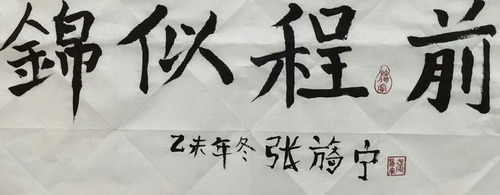 前程似錦
乙未年冬 张旖宁